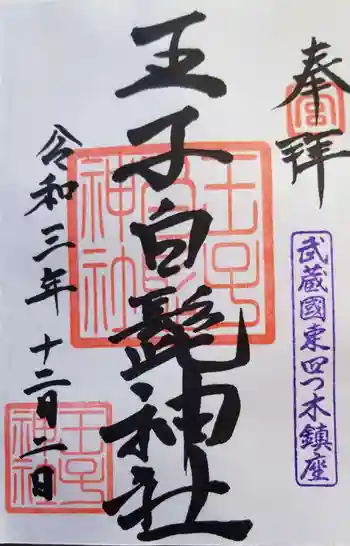 奉拝
武蔵國東四つ木鎮座
王子白髭神社
令和三年十二月二日